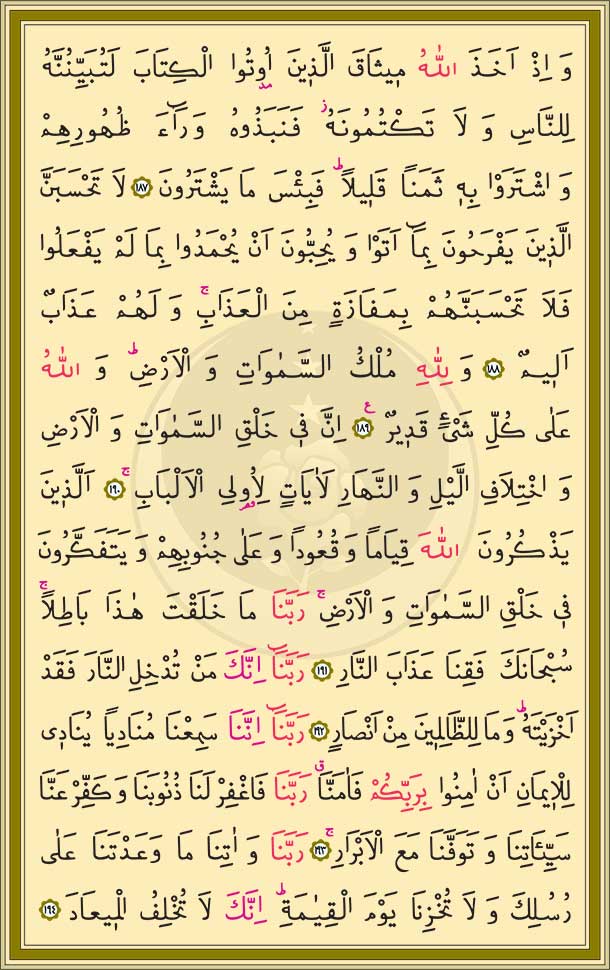 وَ اِذْ اَخَذَ اللّٰهُ م۪يثَاقَ الَّذ۪ينَ اُو۫تُوا الْكِتَابَ لَتُبَيِّنُنَّهُ
لِلنَّاسِ وَ لَا تَكْتُمُونَهُۘ فَنَبَذُوهُ وَرَٓاءَ ظُهُورِهِمْ
وَ اشْتَرَوْا بِه۪ ثَمَنًا قَل۪يلًاۜ فَبِئْسَ مَا يَشْتَرُونَ ﴿١٨٧﴾ لَا تَحْسَبَنَّ
الَّذ۪ينَ يَفْرَحُونَ بِمَٓا اَتَوْا وَ يُحِبُّونَ اَنْ يُحْمَدُوا بِمَا لَمْ يَفْعَلُوا
فَلَا تَحْسَبَنَّهُمْ بِمَفَازَةٍ مِنَ الْعَذَابِۚ وَ لَهُمْ عَذَابٌ
اَل۪يمٌ ﴿١٨٨﴾ وَ لِلّٰهِ مُلْكُ السَّمٰوَاتِ وَ الْاَرْضِۜ وَ اللّٰهُ
عَلٰى كُلِّ شَيْءٍ قَد۪يرٌ ﴿١٨٩﴾ ع اِنَّ ف۪ي خَلْقِ السَّمٰوَاتِ وَ الْاَرْضِ
وَ اخْتِلَافِ الَّيْلِ وَ النَّهَارِ لَاٰيَاتٍ لِاُو۬لِى الْاَلْبَابِۚ ﴿١٩٠﴾ اَلَّذ۪ينَ
يَذْكُرُونَ اللّٰهَ قِيَامًا وَ قُعُودًا وَ عَلٰى جُنُوبِهِمْ وَ يَتَفَكَّرُونَ
ف۪ي خَلْقِ السَّمٰوَاتِ وَ الْاَرْضِۚ رَبَّنَا مَا خَلَقْتَ هٰذَا بَاطِلًاۚ
سُبْحَانَكَ فَقِنَا عَذَابَ النَّارِ ﴿١٩١﴾ رَبَّنَٓا اِنَّكَ مَنْ تُدْخِلِ النَّارَ فَقَدْ
اَخْزَيْتَهُۜ وَ مَا لِلظَّالِم۪ينَ مِنْ اَنْصَارٍ ﴿١٩٢﴾ رَبَّنَٓا اِنَّنَا سَمِعْنَا مُنَادِيًا يُنَاد۪ي
لِلْا۪يمَانِ اَنْ اٰمِنُوا بِرَبِّكُمْ فَاٰمَنَّاۗ رَبَّنَا فَاغْفِرْ لَنَا ذُنُوبَنَا وَ كَفِّرْ عَنَّا
سَيِّـَٔاتِنَا وَ تَوَفَّنَا مَعَ الْاَبْرَارِۚ ﴿١٩٣﴾ رَبَّنَا وَ اٰتِنَا مَا وَعَدْتَنَا عَلٰى
رُسُلِكَ وَ لَا تُخْزِنَا يَوْمَ الْقِيٰمَةِۜ اِنَّكَ لَا تُخْلِفُ الْم۪يعَادَ ﴿١٩٤﴾